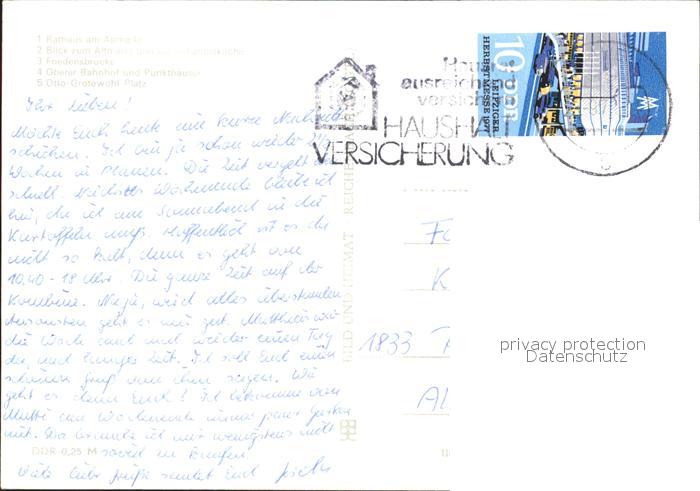 1 Rathaus am Altmarkt
2 Blick zum Altmarkt und zur Johanniskirche
3 Friedensbrücke
4 Oberer Bahnhof und Punkthäuser
5 Otto-Grotewohl-Platz
Ihr Lieben!
Möchte Euch heute eine kurze Nachricht
schicken. Ich bin ja schon wieder
Wochen in Plauen. Die Zeit vergeht
schnell. Nächstes Wochenende bleibe ich
hier, da ich am Sonnabend in die
Kartoffeln muß. Hoffentlich ist es da
nicht so kalt, denn es geht von
10.40 - 18 Uhr. Die ganze Zeit auf der
Kombine. Naja, wird alles überstanden
Ansonsten geht es mir gut. Matthias war
die Woche auch mal wieder einen Tag
da, und einige Zeit. Ich soll Euch einen
schönen Gruß von ihm sagen. Wie
geht es denn Euch? Ich bekomme von
Mutti am Wochenende immer paar Gurken
mit. Da brauche ich mir wenigstens nicht
soviel zu kaufen.
Viele liebe Grüße sendet Euch
DDR 0,25 M
BILD UND HEIMAT REICHENBACH
Hausrat
ausreichend
versichert
HAUSHA
VERSICHERUNG
10
DDR
LEIPZIGER
HERBSTMESSE 1977
M
1833
Al
privacy protection
Datenschutz